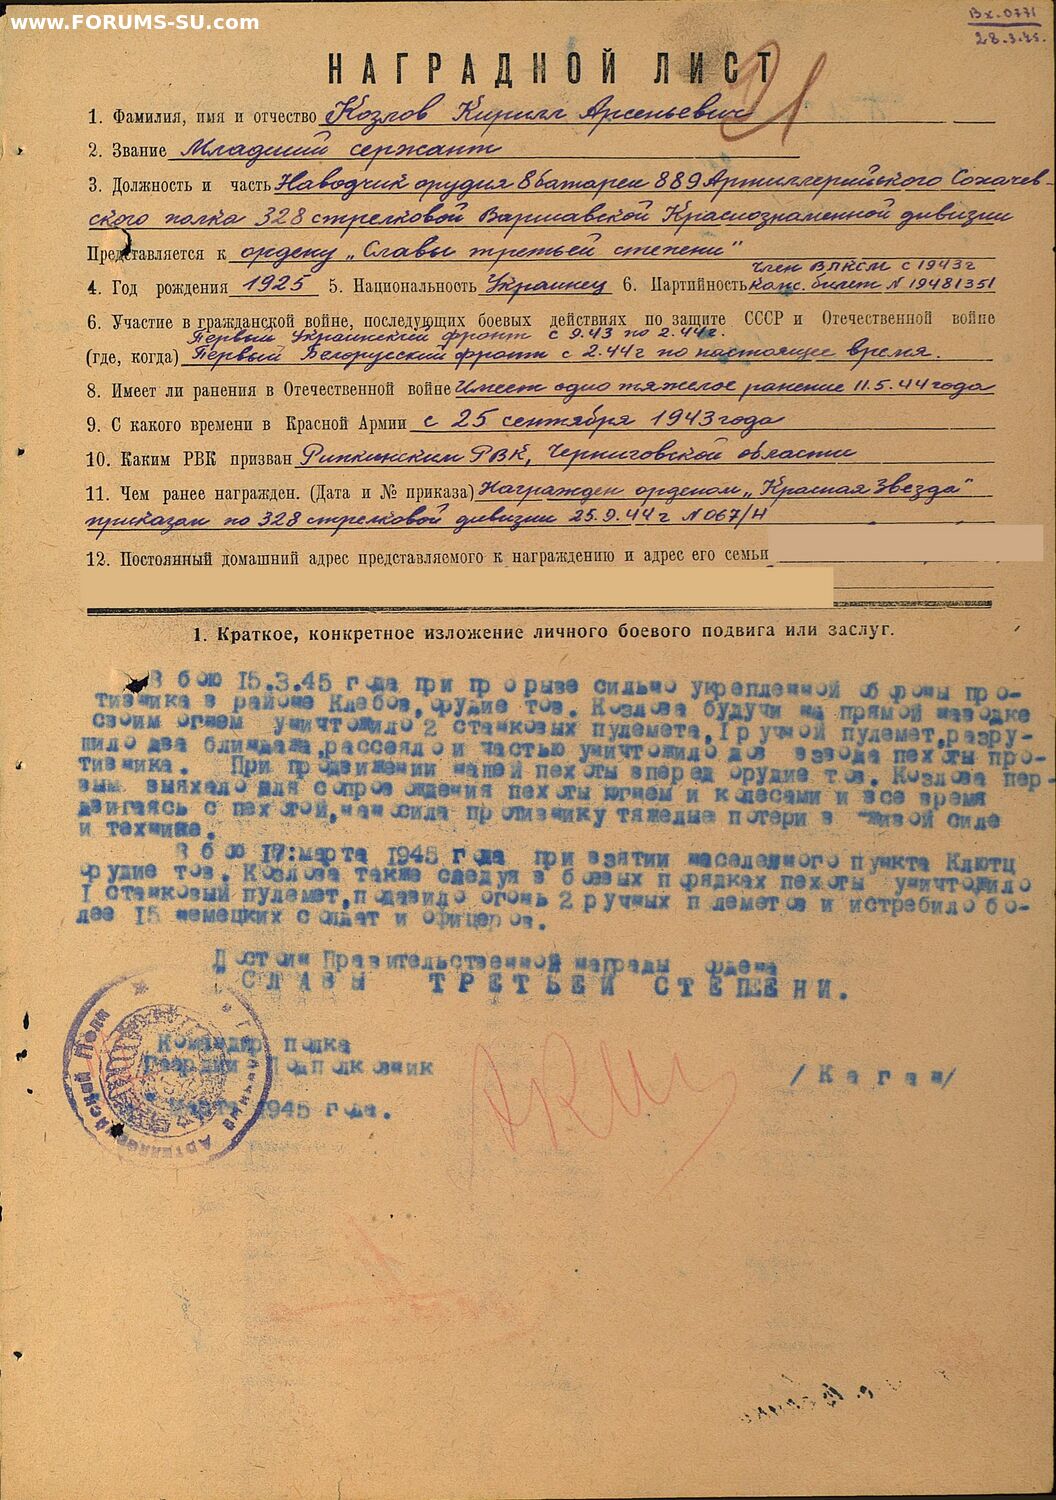 www.FORUMS-SU.com
Вх. 0771
28.3.45.
НАГРАДНОЙ ЛИСТ
21
1. Фамилия, имя и отчество Козлов Кирилл Арсеньевич
2. Звание Младший сержант
3. Должность и часть Наводчик орудия 8 батареи 889 Артиллерийского Сохачев-
ского полка 328 стрелковой Варшавской Краснознаменной дивизии
Представляется к ордену „Славы третьей степени"
член ВЛКСМ с 1943г
4. Год рождения 1925 5. Национальность Украинец 6. Партийность комс. билет № 19481351
6. Участие в гражданской войне, последующих боевых действиях по защите СССР и Отечественной войне
Первый Украинский фронт с 9.43 по 2.44г.
(где, когда) Первый Белорусский фронт с 2.44г по настоящее время.
8. Имеет ли ранения в Отечественной войне Имеет одно тяжелое ранение 11.5.44 года
9. С какого времени в Красной Армии с 25 сентября 1943 года
10. Каким РВК призван Рипкинским РВК, Черниговской области
11. Чем ранее награжден. (Дата и № приказа) Награжден орденом „Красная Звезда"
приказан по 328 стрелковой дивизии 25.9.44г № 067/Н
12. Постоянный домашний адрес представляемого к награждению и адрес его семьи
1. Краткое, конкретное изложение личного боевого подвига или заслуг.
В бою 15.3.45 года при прорыве сильно укрепленной обороны про-
тивника в районе Клебов, орудие тов. Козлова будучи на прямой наводке
своим огнем уничтожило 2 станковых пулемета, I ручной пулемет, разру-
шило два блиндажа, рассеяло и частью уничтожило до взвода пехоты про-
тивника. При продвижении нашей пехоты вперед орудие тов. Козлова пер-
вым выехало для сопровождения пехоты огнем и колесами и все время
двигаясь с пехотой, наносила противнику тяжелые потери в живой силе
и технике.
В бою 17:марта 1945 года при взятии населенного пункта Клютц
орудие тов. Козлова также следуя в боевых порядках пехоты уничтожило
I станковый пулемет, подавило огонь 2 ручных пулеметов и истребило бо-
лее 15 немецких солдат и офицеров.
Достоин Правительственной награды ордена
СЛАВЫ ТРЕТЬЕЙ СТЕПЕНИ.
Командир полка
Гвардии Подполковник
/Каган/
марта 1945 года.